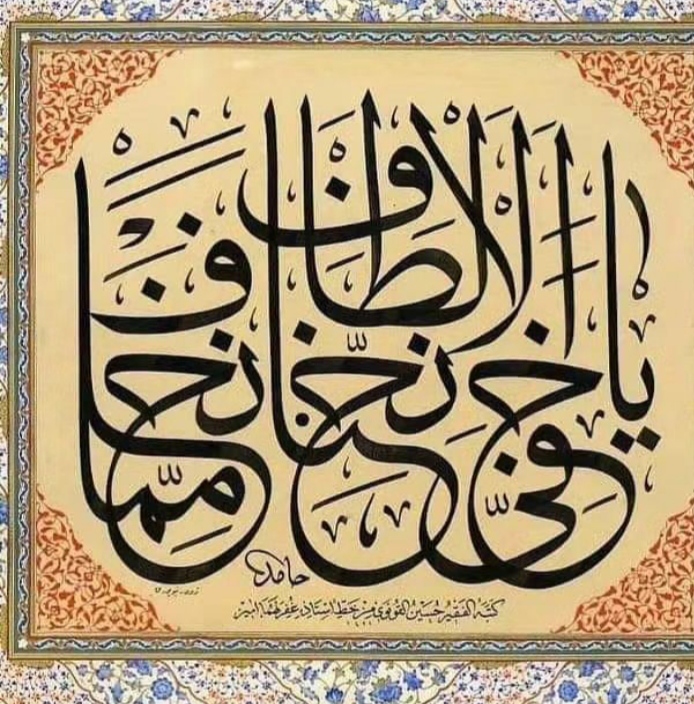 يا خفي الالطاف نجنا مما نخاف
حامد
كتبه الفقير حسين القونوي من خط استاذه غفر لهما